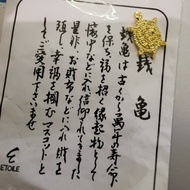 銭亀
銭亀は古くから萬年の寿命
を保ち福を招く縁起物として
懐中などに入れ信仰されてきました
是非、お財布などに入れ財を
隠し幸福を掴むマスコットと
してご愛用下さいませ
ETOILE